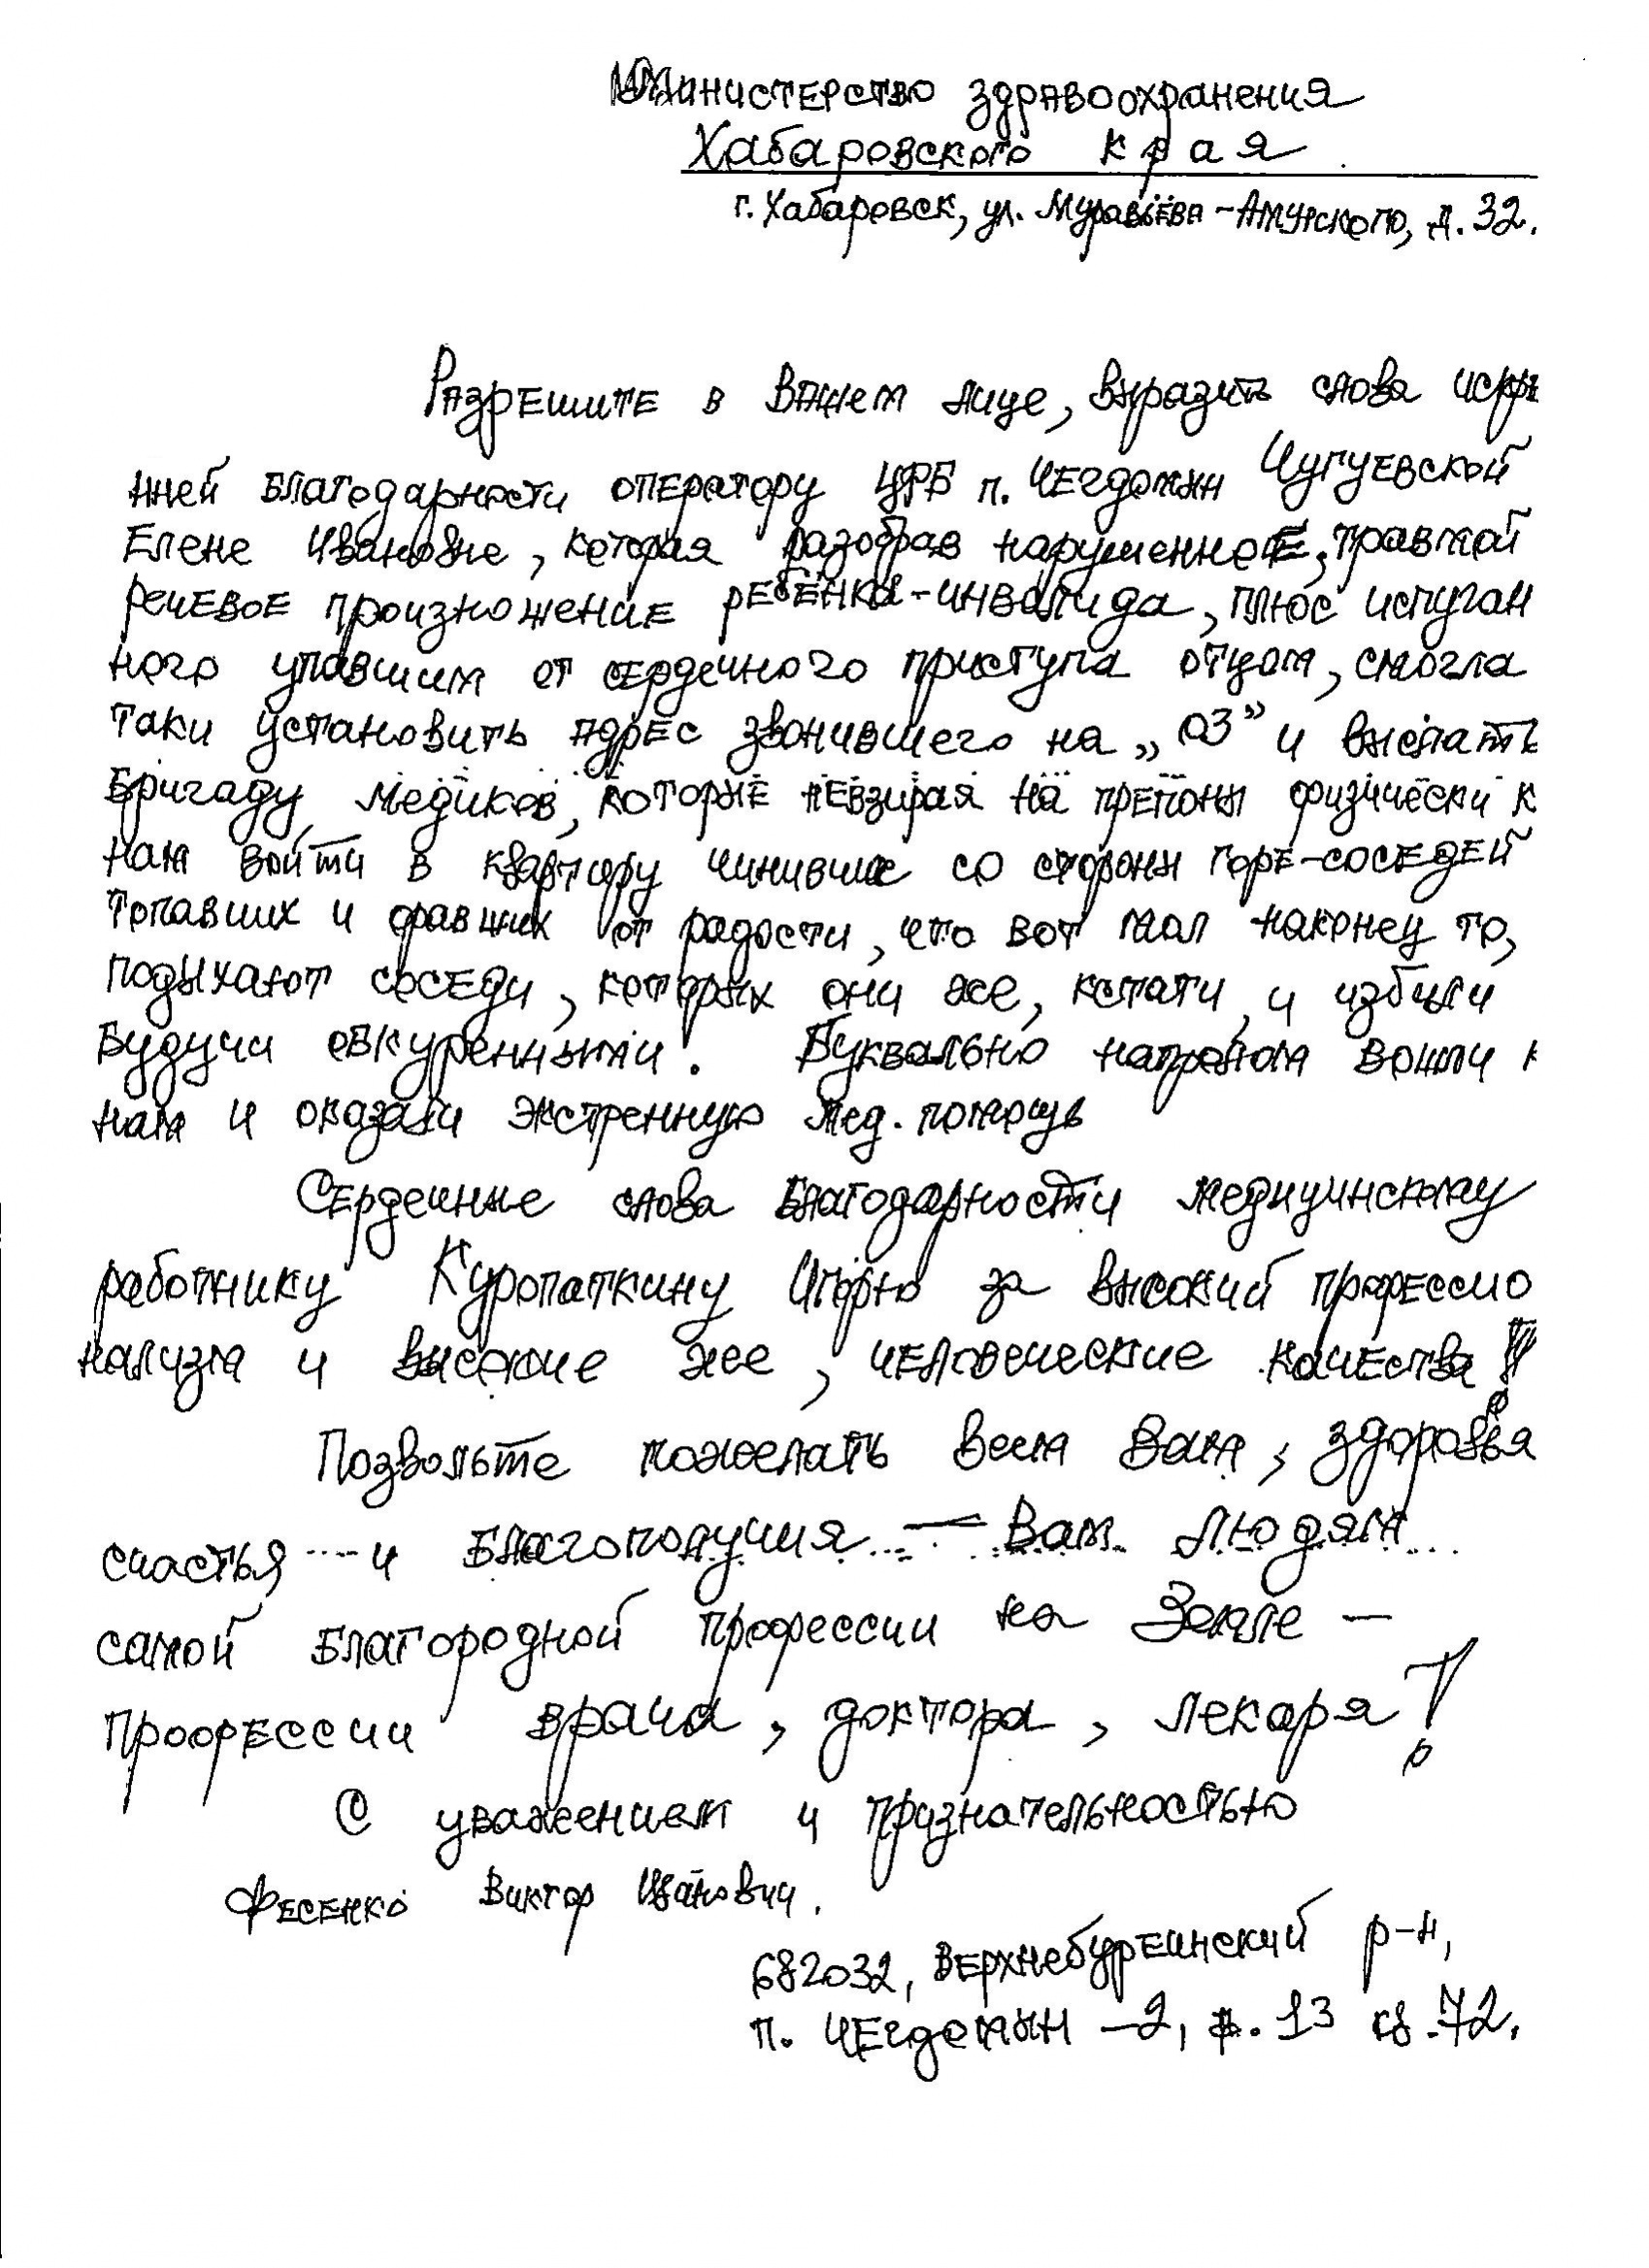 Министерство здравоохранения
Хабаровского края
г. Хабаровск, ул. Муравьёва-Амурского, д. 32.
Разрешите в Вашем лице, выразить слова искре
нней благодарности оператору ЦРБ п. Чегдомын Чугуевской
Елене Ивановне, которая разобрав нарушенное, травмой
речевое произножение ребёнка-инвалида, плюс испуган
ного упавшим от сердечного приступа отцом, смогла
таки установить адрес звонившего на „03” и выслать
бригаду медиков, которые невзирая на препоны физически к
нам войти в квартиру чинившие со стороны горе-соседей
топавших и оравших от радости, что вот мол наконец то,
подыхают соседи, которых они же, кстати, и избили
будучи обкуренными. Буквально напролом вошли к
нам и оказали экстренную мед. помощь
Сердечные слова благодарности медицинскому
работнику Куропаткину Игорю за высокий профессио
нализм и высокие же, человеческие качества!
Позвольте пожелать всем Вам, здоровья
счастья и благополучия — Вам людям
самой благородной профессии на Земле —
профессии врача, доктора, лекаря!
С уважением и признательностью
Фесенко Виктор Иванович.
682032, Верхнебуреинский р-н,
п. Чегдомын -2, д. 13 кв. 72.